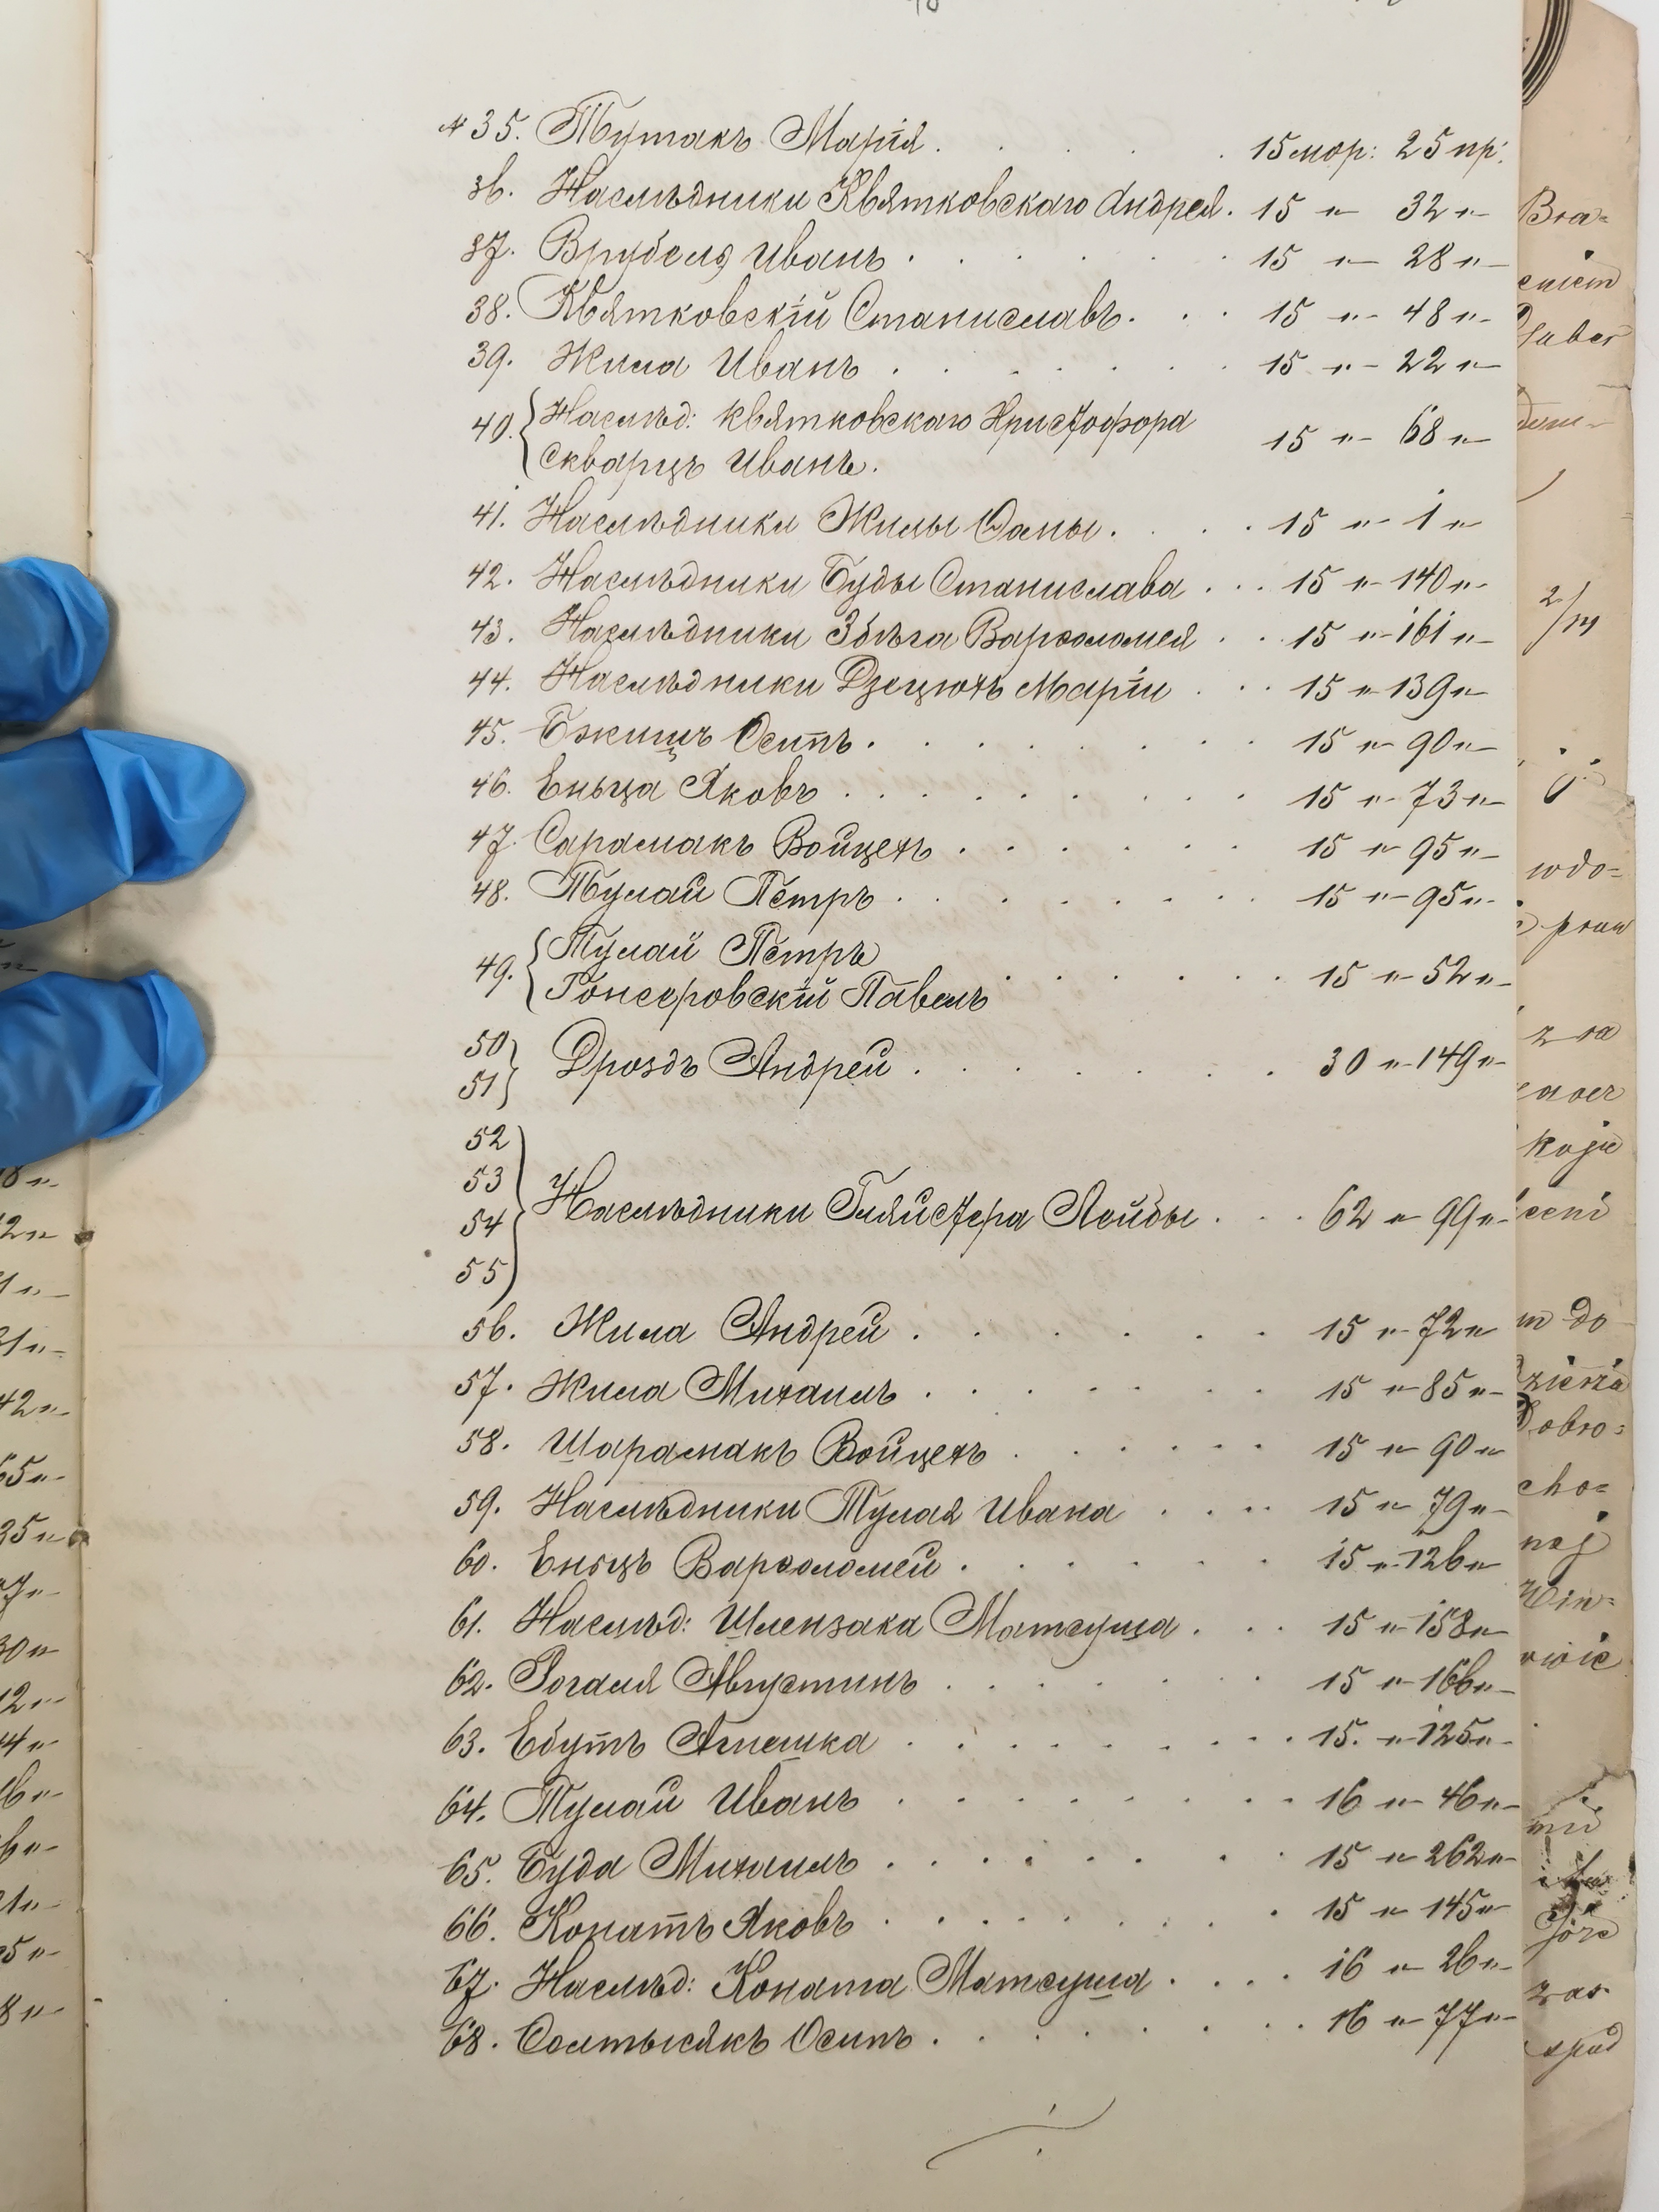 № 35. Тутакъ Марія . . . . . 15 мор: 25 пр:
36. Наслѣдники Квятковскаго Андрея. 15 „ 32 „
37. Врубель Иванъ . . . . . 15 „ 28 „
38. Квятковскій Станиславъ. . . 15 „ 48 „
39. Жила Иванъ . . . . . 15 „ 22 „
40. { Наслѣд: Квятковскаго Христофора
Скварцъ Иванъ. 15 „ 68 „
41. Наслѣдники Жилы Ѳомы . . . 15 „ 1 „
42. Наслѣдники Буды Станислава . . . 15 „ 140 „
43. Наслѣдники Збѣга Варѳоломея . . 15 „ 161 „
44. Наслѣдники Дзецюхъ Маріи . . . 15 „ 139 „
45. Бжищъ Осипъ . . . . . . 15 „ 90 „
46. Еньца Яковъ . . . . . . 15 „ 73 „
47. Сарамакъ Войцехъ . . . . . 15 „ 95 „
48. Тулай Петръ . . . . . . 15 „ 95 „
49. { Тулай Петръ
Гонсеровскій Павелъ . . . . . 15 „ 52 „
50
51 } Дроздъ Андрей . . . . . 30 „ 149 „
52
53
54
55 } Наслѣдники Гляйстера Лейбы . . . 62 „ 99 „
56. Жила Андрей . . . . . . 15 „ 72 „
57. Жила Михаилъ . . . . . . 15 „ 85 „
58. Шарамакъ Войцехъ . . . . . 15 „ 90 „
59. Наслѣдники Тулая Ивана . . . . 15 „ 79 „
60. Енъцъ Варѳоломей . . . . . 15 „ 126 „
61. Наслѣд: Шлензака Матеуша . . . 15 „ 158 „
62. Рогаля Августинъ . . . . . 15 „ 166 „
63. Ебутъ Агнешка . . . . . . 15. „ 125 „
64. Тулай Иванъ . . . . . . 16 „ 46 „
65. Буда Михаилъ . . . . . . 15 „ 262 „
66. Копатъ Яковъ . . . . . . 15 „ 145 „
67. Наслѣд: Копата Матеуша . . . . 16 „ 26 „
68. Солтысякъ Осипъ . . . . . . 16 „ 77 „